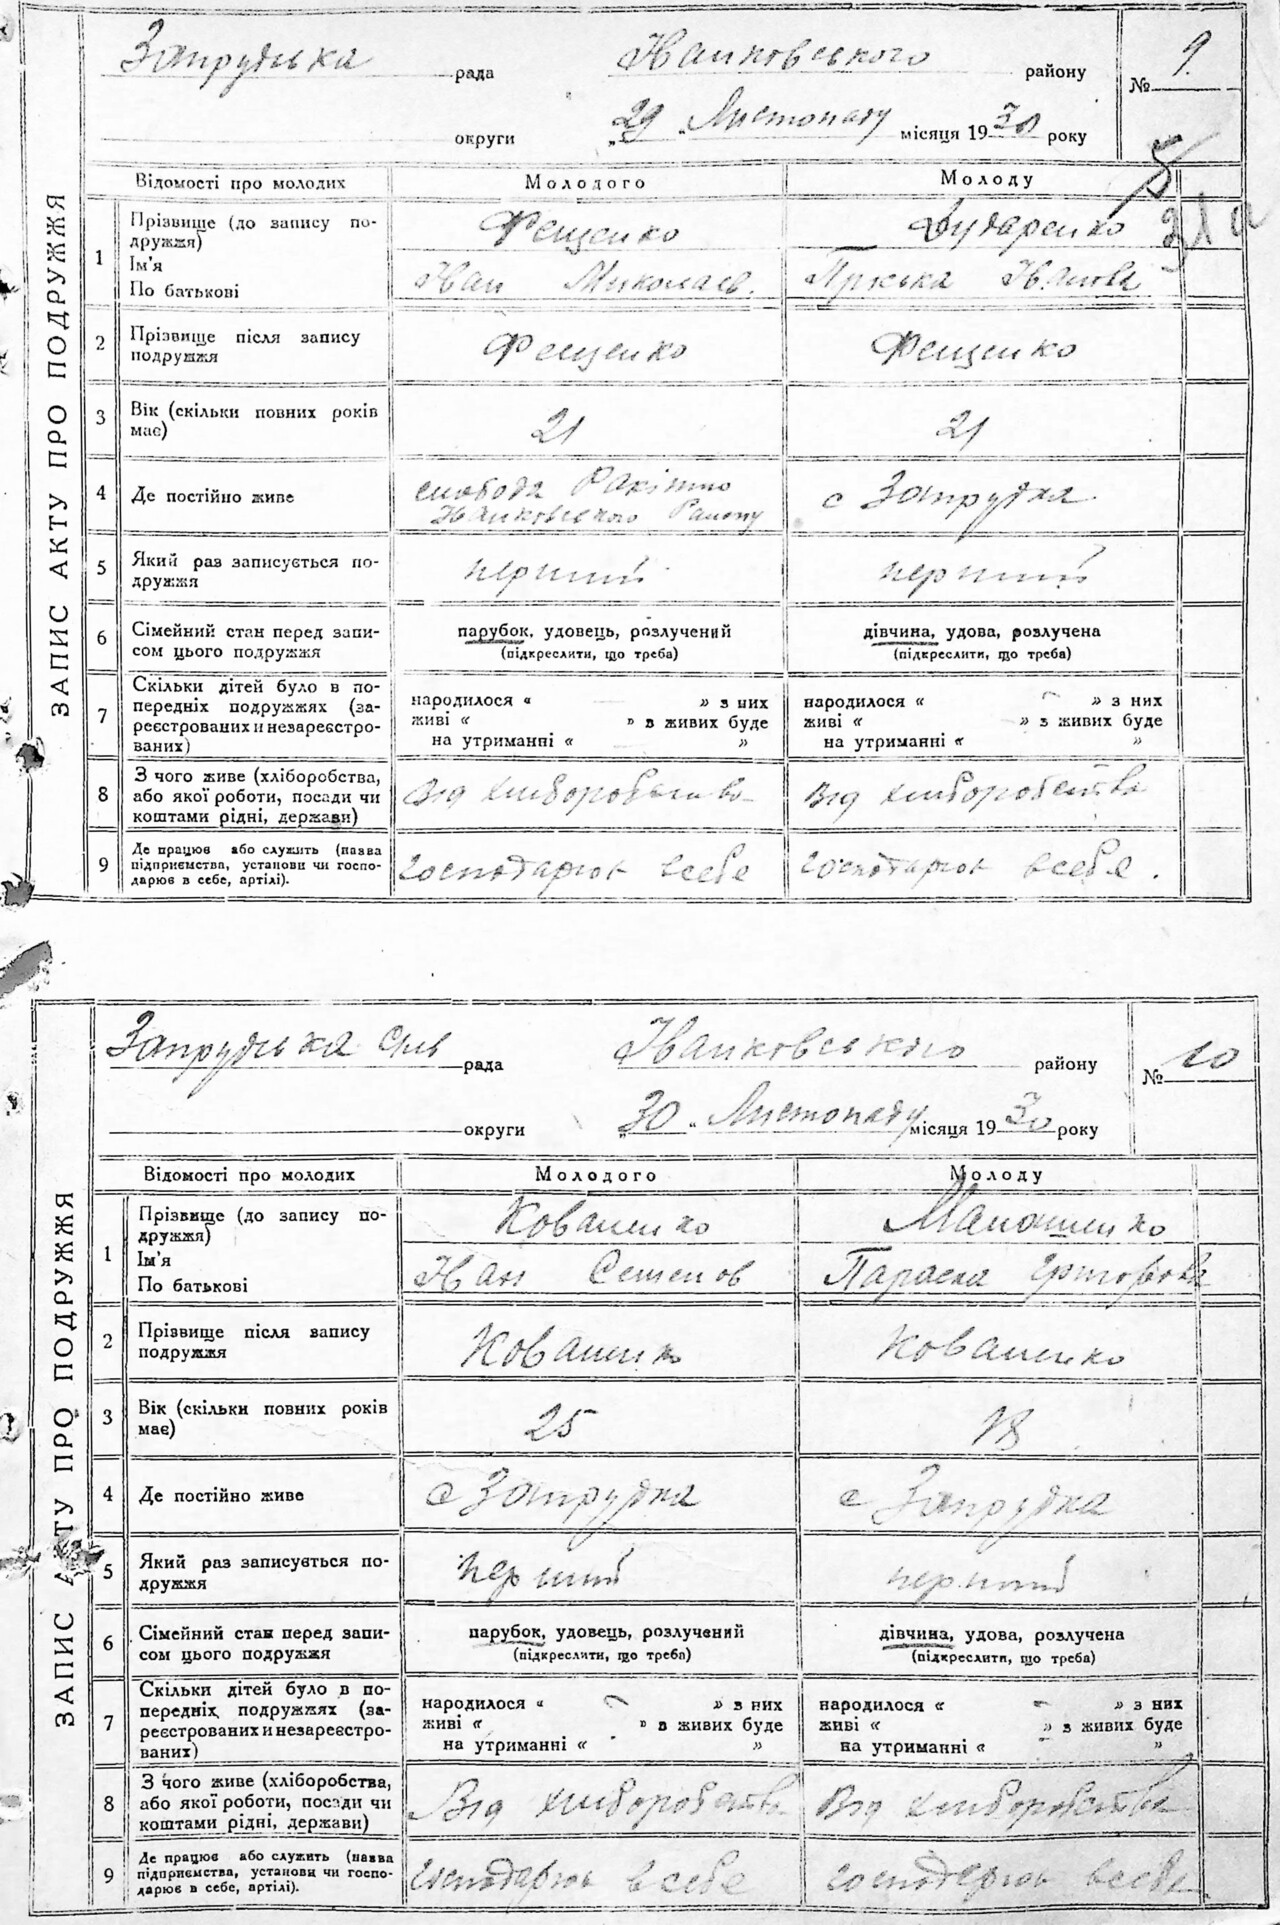 ЗАПИС АКТУ ПРО ПОДРУЖЖЯ
Запрудська рада Іванковського району № 9
округи „29 „ Листопаду місяця 1930 року
Відомості про молодих Молодого Молоду
1 Прізвище (до запису по- Фещенко
дружжя)
Ім'я Іван Миколаєв.
По батькові
2 Прізвище після запису Фещенко Фещенко
подружжя
3 Вік (скільки повних років 21 21
має)
4 Де постійно живе слобода с Запрудка
Іванковського Району
5 Який раз записується по- перший перший
дружжя
6 Сімейний стан перед запи- парубок, удовець, розлучений дівчина, удова, розлучена
сом цього подружжя (підкреслити, що треба) (підкреслити, що треба)
7 Скільки дітей було в по- народилося « » з них народилося « » з них
передніх подружжях (за- живі « » в живих буде живі « » з живих буде
реєстрованих и незареєстро- на утриманні « » на утриманні « »
ваних)
8 З чого живе (хліборобства, Від хліборобства Від хліборобства
або якої роботи, посади чи
коштами рідні, держави)
9 Де працює або служить (назва господарює в себе господарює в себе.
підприємства, установи чи госпо-
дарює в себе, артілі).
ЗАПИС АКТУ ПРО ПОДРУЖЖЯ
Запрудська Сіль рада Іванковського району № 10
округи „30 „ Листопаду місяця 1930 року
Відомості про молодих Молодого Молоду
1 Прізвище (до запису по- Коваленко
дружжя)
Ім'я Іван Семенов Параска Григорова
По батькові
2 Прізвище після запису Коваленко Коваленко
подружжя
3 Вік (скільки повних років 25 18
має)
4 Де постійно живе с Запрудка с Запрудка
5 Який раз записується по- перший перший
дружжя
6 Сімейний стан перед запи- парубок, удовець, розлучений дівчина, удова, розлучена
сом цього подружжя (підкреслити, що треба) (підкреслити, що треба)
7 Скільки дітей було в по- народилося « » з них народилося « » з них
передніх подружжях (за- живі « » в живих буде живі « » з живих буде
реєстрованих и незареєстро- на утриманні « » на утриманні « »
ваних)
8 З чого живе (хліборобства, Від хліборобства Від хліборобства
або якої роботи, посади чи
коштами рідні, держави)
9 Де працює або служить (назва господарює в себе господарює в себе
підприємства, установи чи госпо-
дарює в себе, артілі).